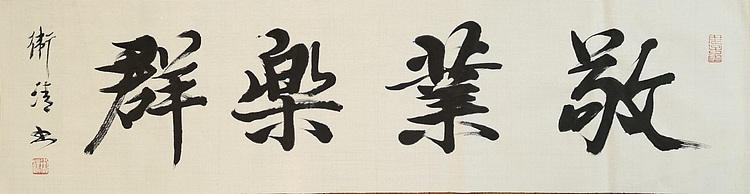 敬業樂群
衛清书